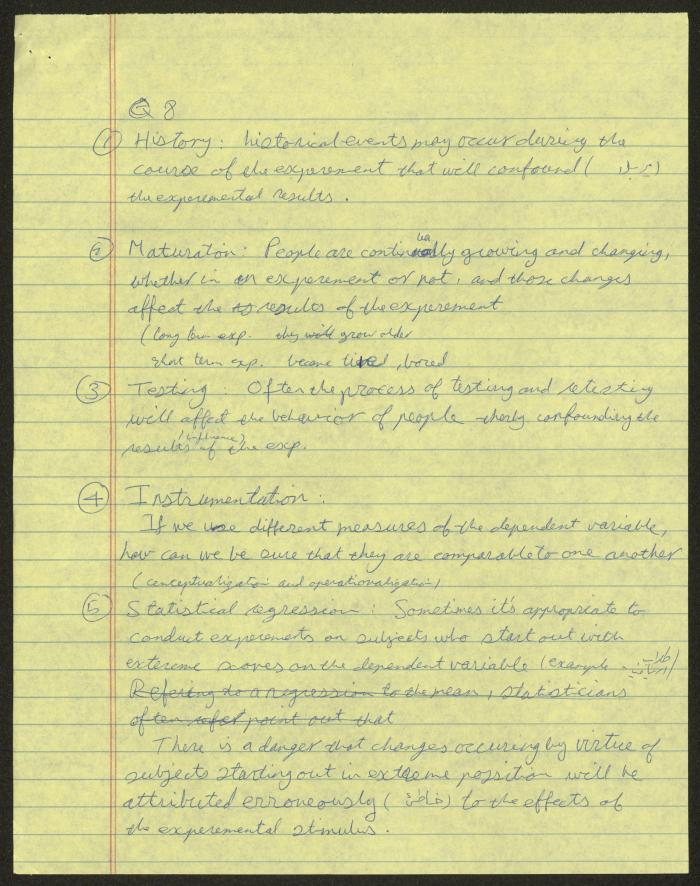 Q 8
① History: historical events may occur during the
course of the experement that will confound (
the experemental results.
② Maturaton: People are continually growing and changing,
whether in an experement or not, and those changes
affect the results of the experement
(long term exp. they will grow older
short term exp. became tired, bored
③ Testing: Often the process of testing and retesting
will affect the behavior of people therby confounding the
(influence)
results of the exp.
④ Instrumentation:
If we use different measures of the dependent variable,
how can we be sure that they are comparable to one another
(conceptualization and operationalization)
⑤ Statistical regression: Sometimes it's appropriate to
conduct experements on subjects who start out with
extereme scores on the dependent variable (example
Refering to a regression to the mean, statisticians
often refer point out that
There is a danger that changes occuring by virtue of
subjects starting out in extereme possition will be
attributed erroneously ( ) to the effects of
the experemental stimulus.